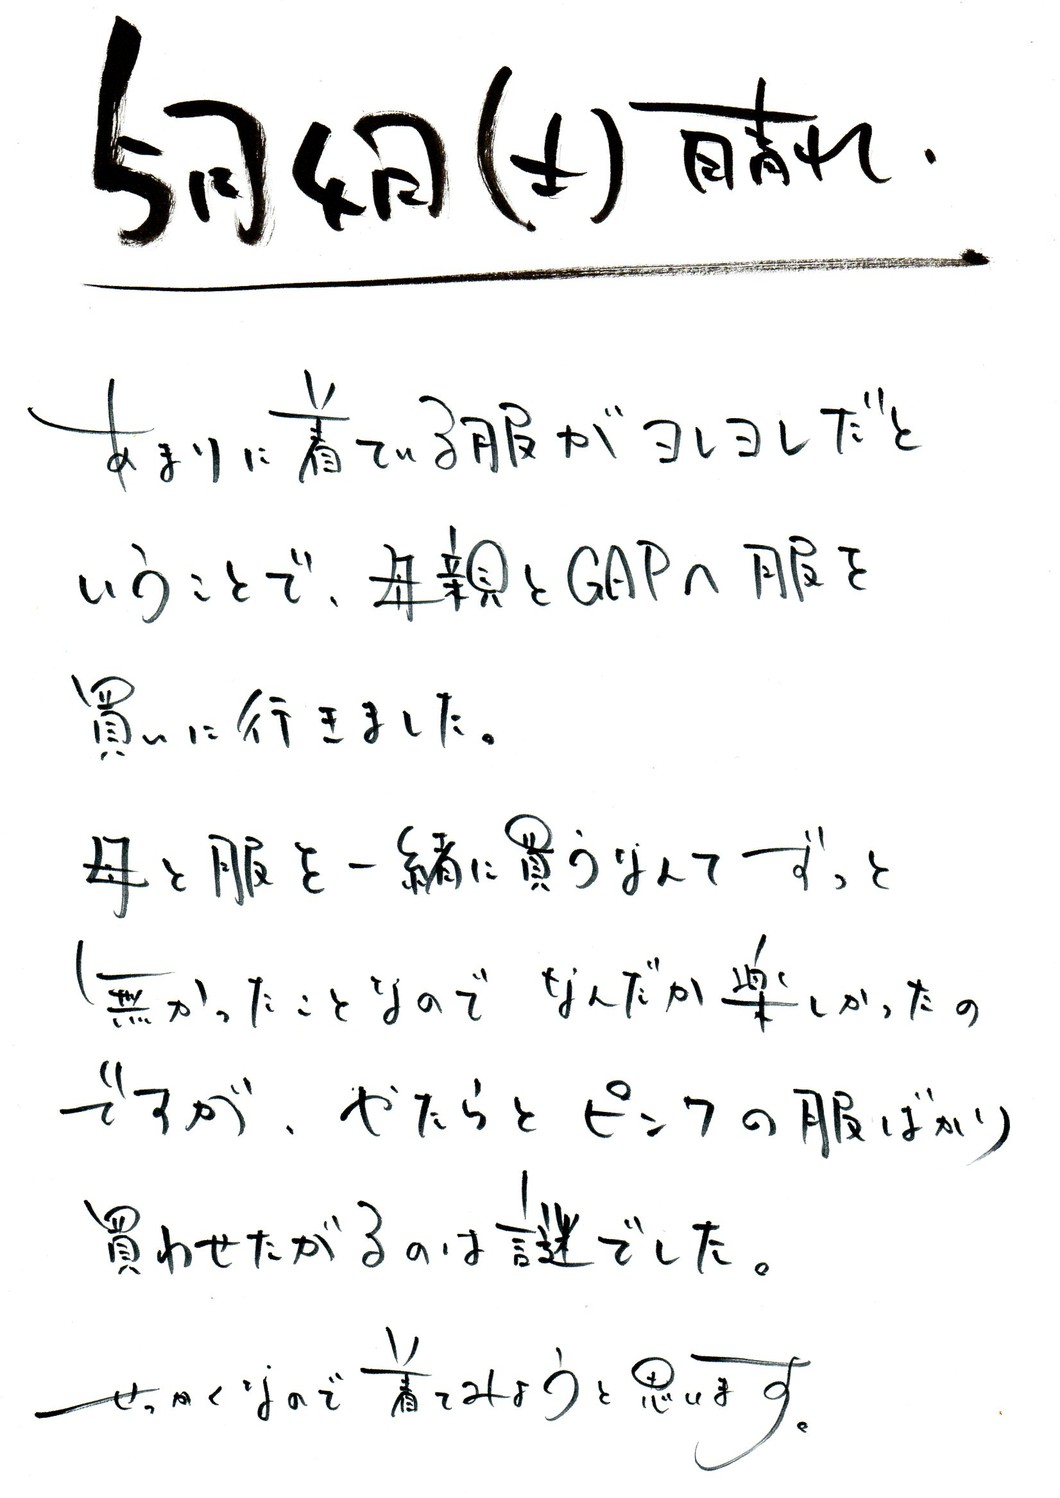 5月4日(土)晴れ.
あまりに着ている服がヨレヨレだと
いうことで、母親とGAPへ服を
買いに行きました。
母と服を一緒に買うなんてずっと
無かったことなので なんだか楽しかったの
ですが、やたらと ピンクの服ばかり
買わせたがるのは謎でした。
せっかくなので着てみようと思います。